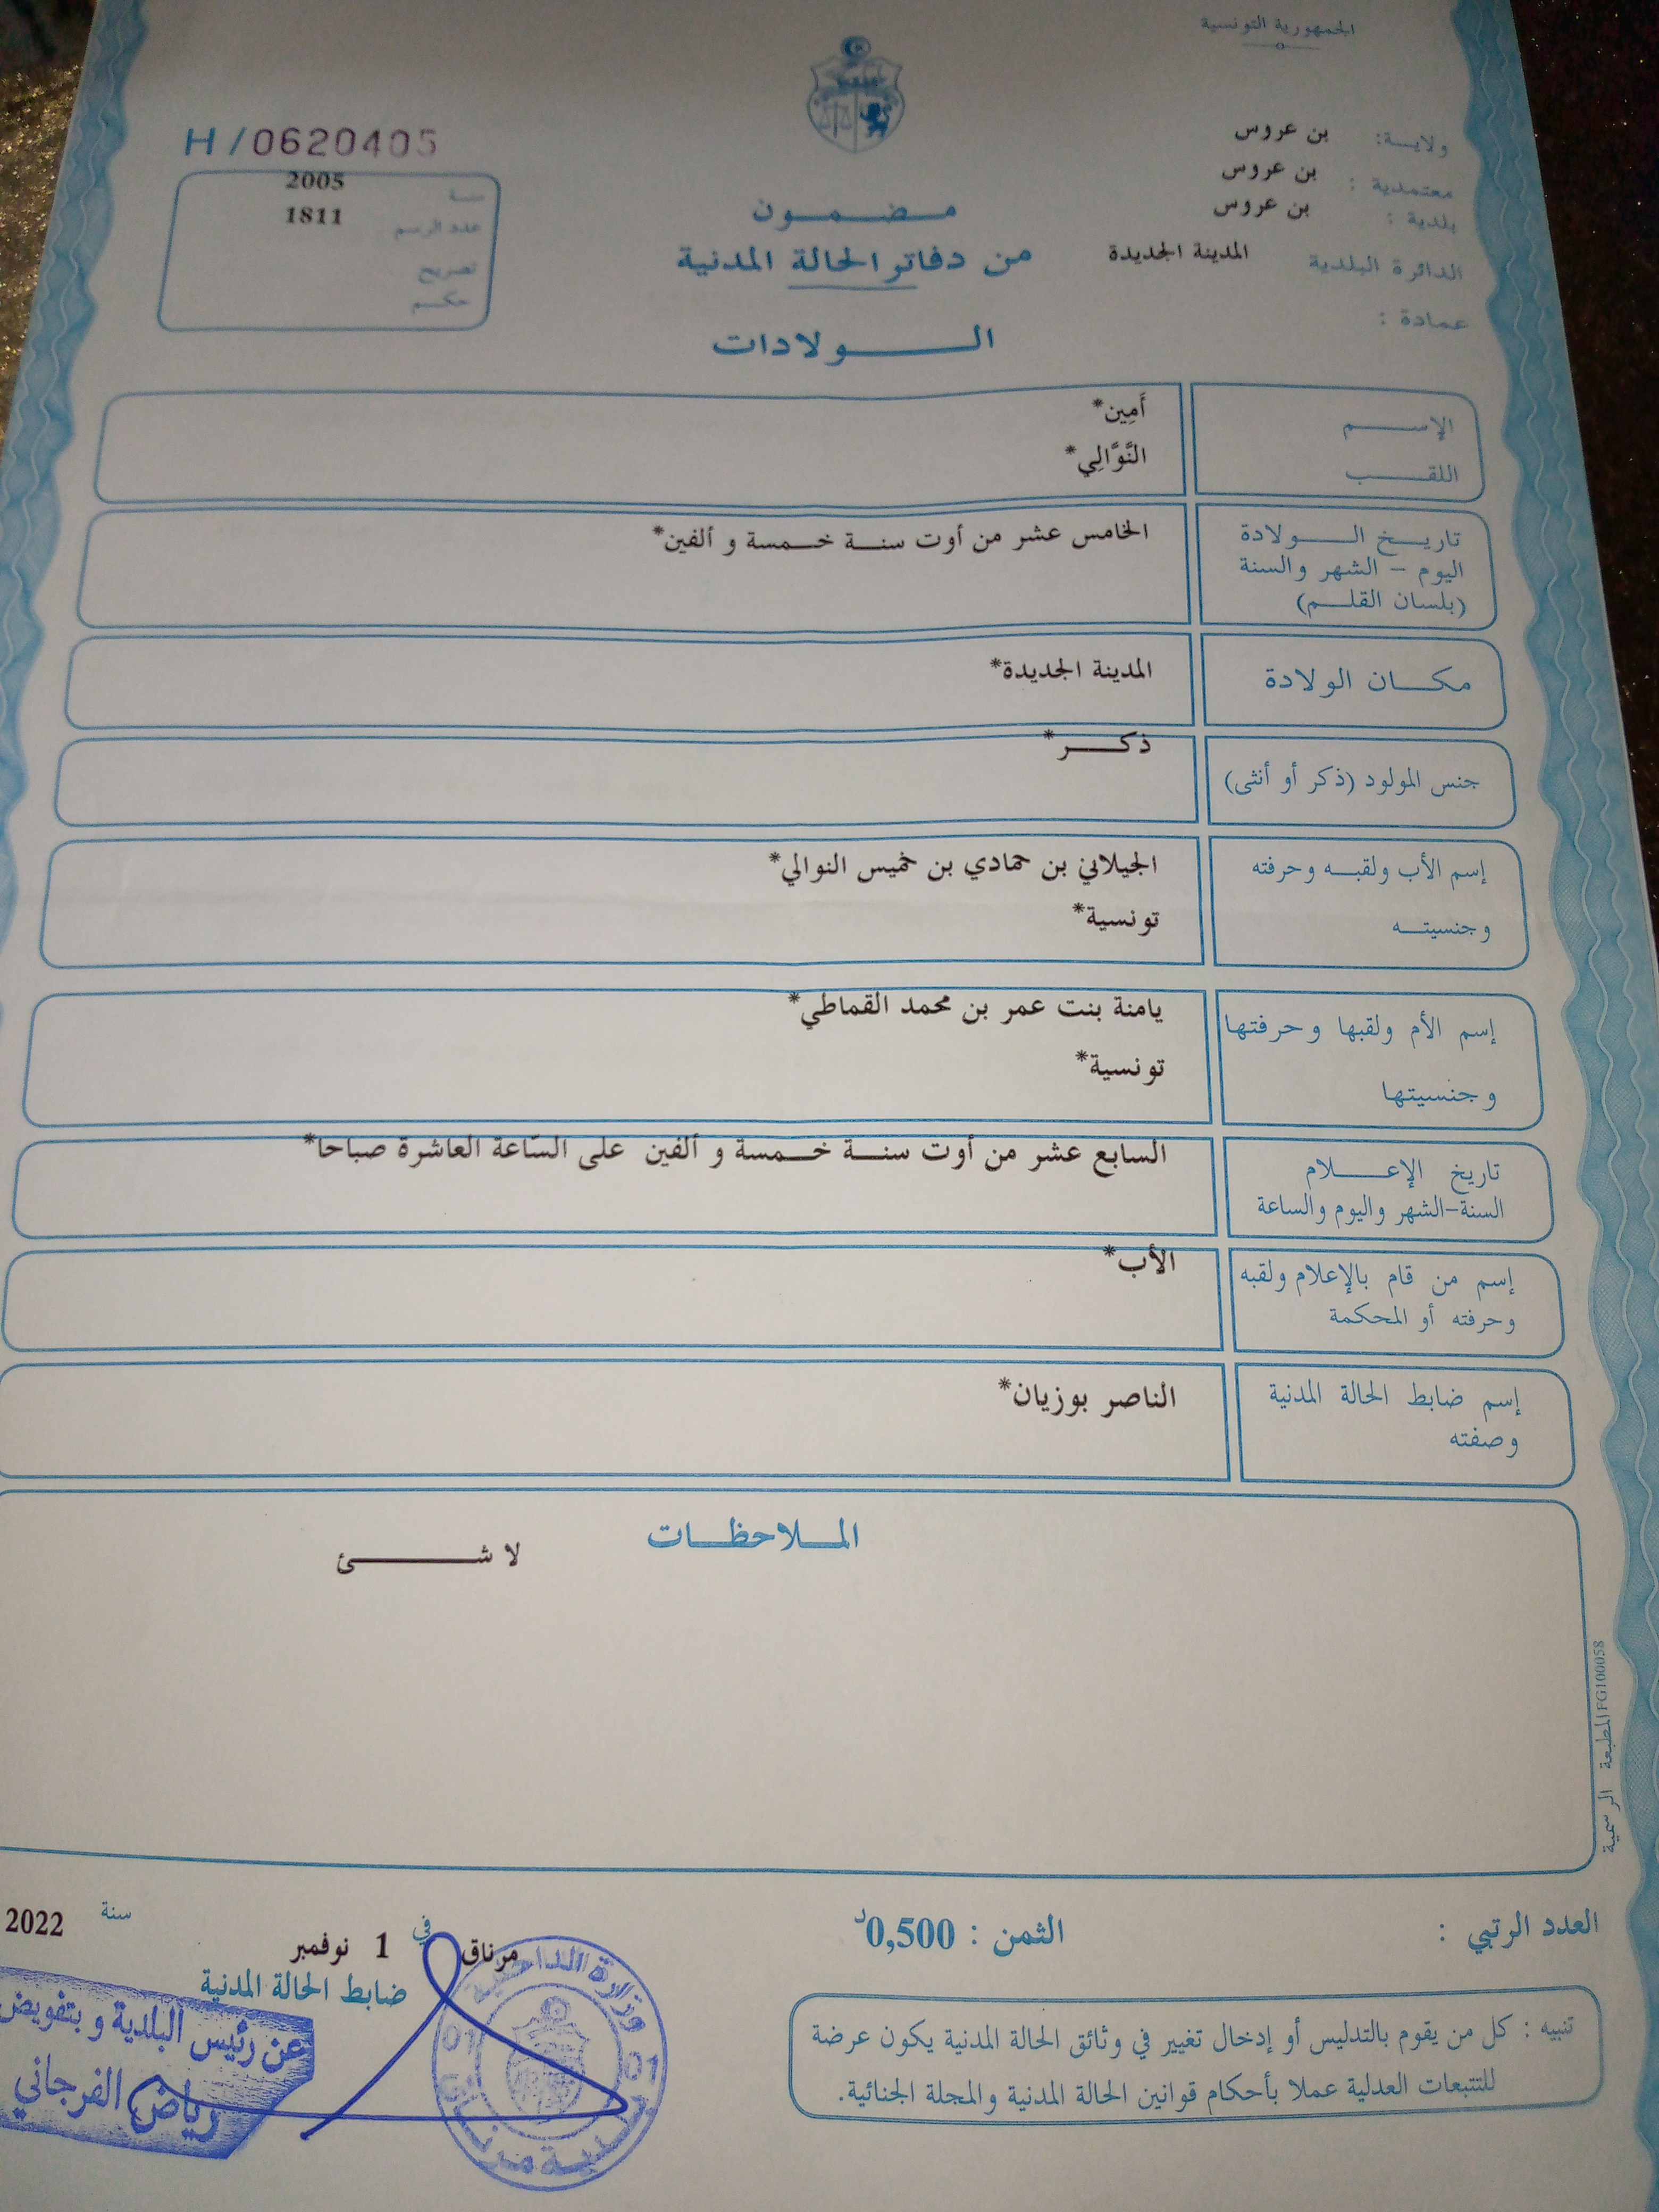 الجمهورية التونسية
ولايــة: بن عروس
معتمدية : بن عروس
بلدية : بن عروس
الدائرة البلدية المدينة الجديدة
عمادة :
H/0620405
سنة 2005
عدد الرسم 1811
تصريح
حكـم
مـضـمـون
من دفاتر الحالة المدنية
الـولادات
الإسـم أَمِين*
اللقـب النَّوَّالِي*
تاريـخ الـولادة الخامس عشر من أوت سنـة خـمسة و ألفين*
اليوم - الشهر والسنة
(بلسان القلـم)
مكـان الولادة المدينة الجديدة*
جنس المولود (ذكر أو أنثى) ذكـر*
إسم الأب ولقبـه وحرفته الجيلاني بن حمادي بن خميس النوالي*
وجنسيتـه تونسية*
إسم الأم ولقبها وحرفتها يامنة بنت عمر بن محمد القماطي*
وجنسيتها تونسية*
تاريخ الإعـلام السابع عشر من أوت سنـة خـمسة و ألفين على السّاعة العاشرة صباحا*
السنة-الشهر واليوم والساعة
إسم من قام بالإعلام ولقبه الأب*
وحرفته أو المحكمة
إسم ضابط الحالة المدنية الناصر بوزيان*
وصفته
المـلاحظـات
لا شـئ
المطبعة الرسمية FG100058
العدد الرتبي :
الثمن : 0,500د
مرناق في 1 نوفمبر سنة 2022
ضابط الحالة المدنية
عن رئيس البلدية و بتفويض
رياض الفرجاني
وزارة الداخلية
01 01
بلدية مرناق
تنبيه : كل من يقوم بالتدليس أو إدخال تغيير في وثائق الحالة المدنية يكون عرضة
للتتبعات العدلية عملا بأحكام قوانين الحالة المدنية والمجلة الجنائية.